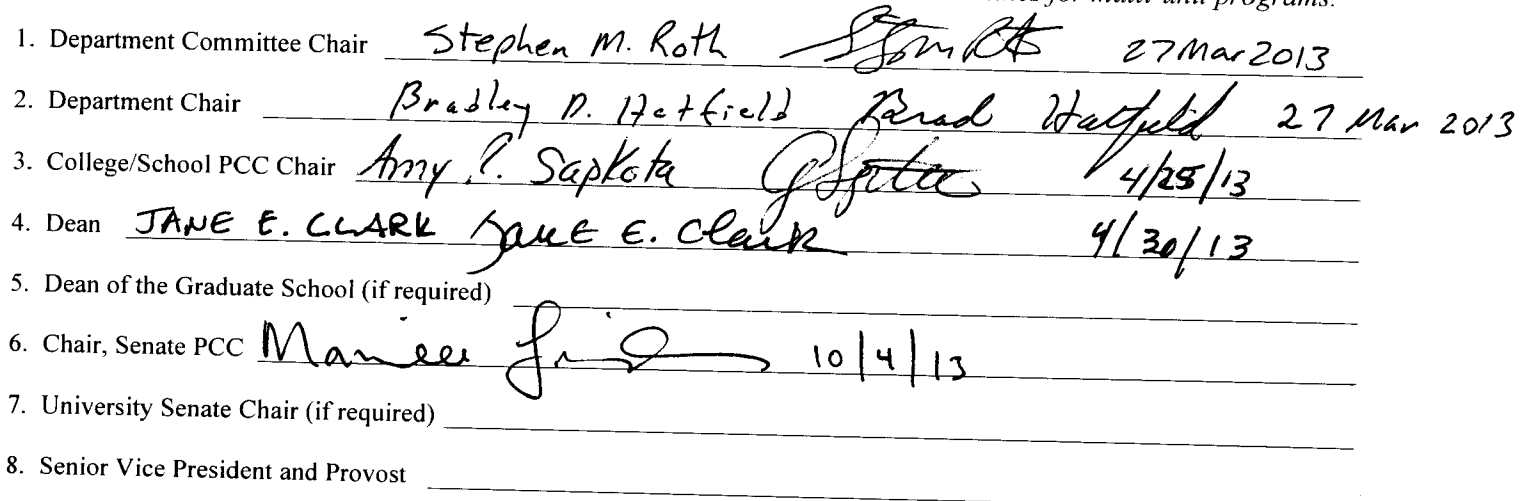 for multi-unit programs.
1. Department Committee Chair Stephen M. Roth 27 Mar 2013
2. Department Chair Bradley D. Hatfield Brad Hatfield 27 Mar 2013
3. College/School PCC Chair Amy Sapkota 4/25/13
4. Dean JANE E. CLARK Jane E. Clark 4/30/13
5. Dean of the Graduate School (if required)
6. Chair, Senate PCC 10/4/13
7. University Senate Chair (if required)
8. Senior Vice President and Provost